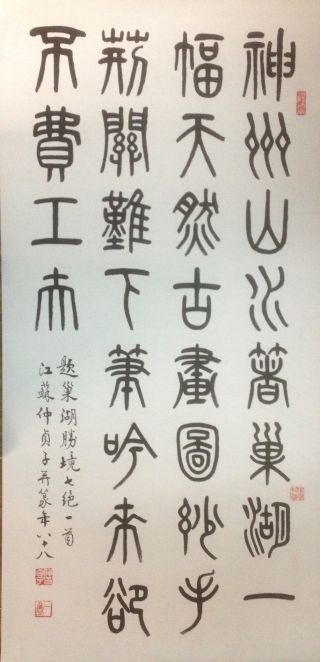 神州山水箸巢湖一
幅天然古畫圖妙手
荊關難下筆吟來卻
不費工夫
題巢湖勝境七絕一首
江蘇仲貞子并篆年八十八